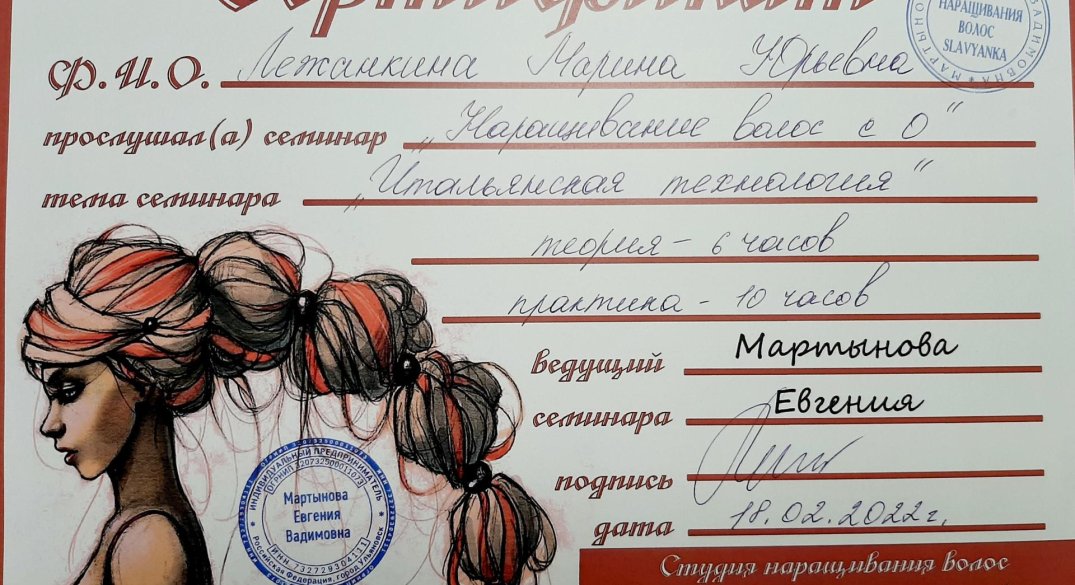 Сертификат
Ф.И.О. Лежанкина Марина Юрьевна
прослушал(а) семинар „Наращивание волос с 0"
тема семинара „Итальянская технология"
теория - 6 часов
практика - 10 часов
ведущий Мартынова
семинара Евгения
подпись
дата 18.02.2022г.
Студия наращивания волос
НАРАЩИВАНИЯ
ВОЛОС
SLAVYANKA
ИНДИВИДУАЛЬНЫЙ ПРЕДПРИНИМАТЕЛЬ
Мартынова
Евгения
Вадимовна
ИНН 732729304111
Российская Федерация, город Ульяновск